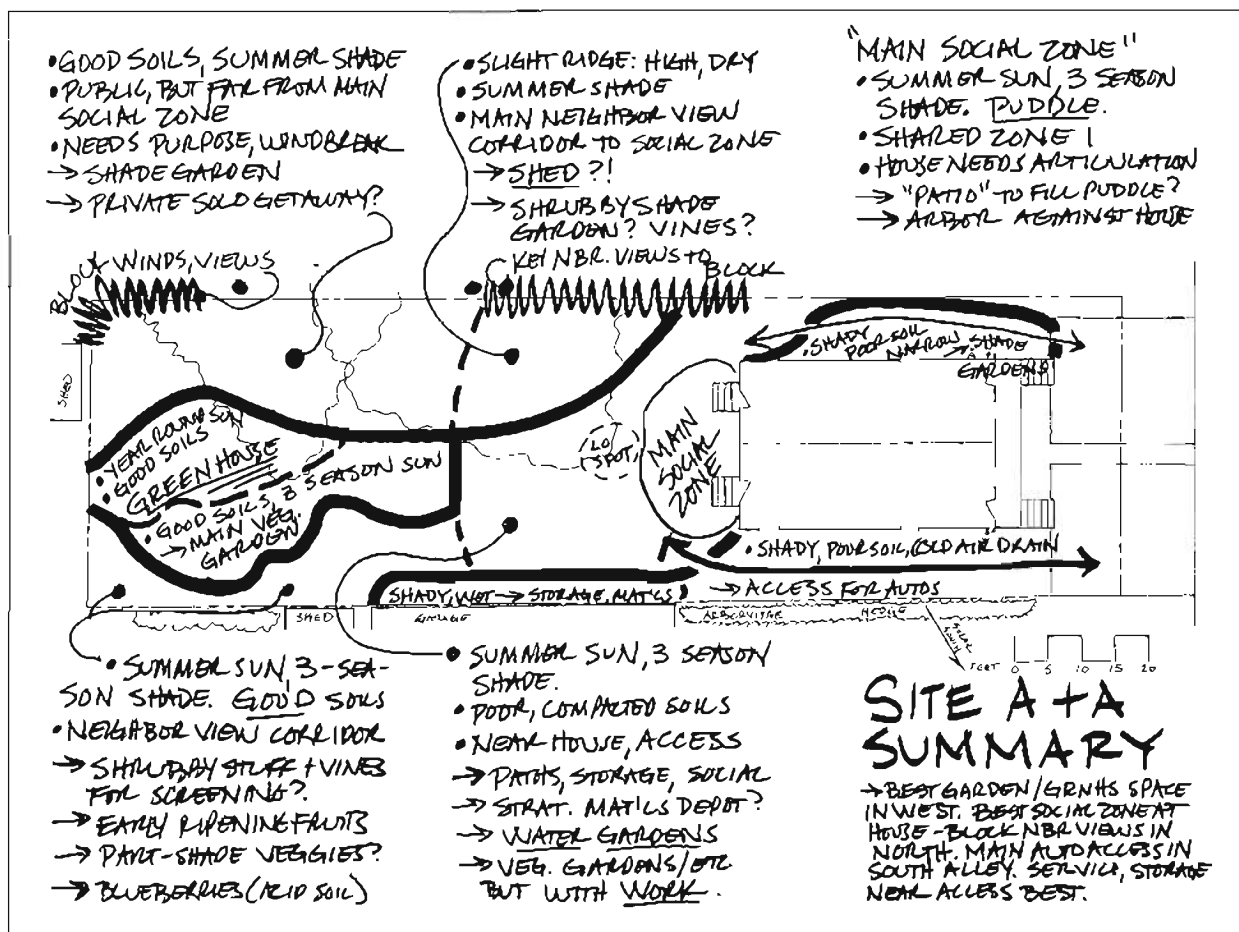 • GOOD SOILS, SUMMER SHADE
• PUBLIC, BUT FAR FROM MAIN
SOCIAL ZONE
• NEEDS PURPOSE, WINDBREAK
→ SHADE GARDEN
→ PRIVATE SOLO GETAWAY?
• SLIGHT RIDGE: HIGH, DRY
• SUMMER SHADE
• MAIN NEIGHBOR VIEW
CORRIDOR TO SOCIAL ZONE
→ SHED ?!
→ SHRUBBY SHADE
GARDEN? VINES?
"MAIN SOCIAL ZONE"
• SUMMER SUN, 3 SEASON
SHADE. PUDDLE.
• SHARED ZONE 1
• HOUSE NEEDS ARTICULATION
→ "PATIO" TO FILL PUDDLE?
→ ARBOR AGAINST HOUSE
BLOCK WINDS, VIEWS
KEY NBR. VIEWS TO
BLOCK
SHED
• SHADY
POOR SOIL
NARROW → SHADE
GARDENS
• YEAR ROUND SUN
• GOOD SOILS
GREENHOUSE
• GOOD SOILS, 3 SEASON SUN
→ MAIN VEG.
GARDEN
LO
SPOT
MAIN
SOCIAL
ZONE
• SHADY, POOR SOIL, COLD AIR DRAIN
→ ACCESS FOR AUTOS
SHADY, WET → STORAGE, MAT'LS
SHED
GARAGE
ARBORVITAE HEDGE
SOLAR
SOUTH
FEET 0 5 10 15 20
• SUMMER SUN, 3-SEA-
SON SHADE. GOOD SOILS
• NEIGHBOR VIEW CORRIDOR
→ SHRUBBY STUFF + VINES
FOR SCREENING?
→ EARLY RIPENING FRUITS
→ PART-SHADE VEGGIES?
→ BLUEBERRIES (ACID SOIL)
• SUMMER SUN, 3 SEASON
SHADE.
• POOR, COMPACTED SOILS
• NEAR HOUSE, ACCESS
→ PATHS, STORAGE, SOCIAL
→ STRAT. MAT'LS DEPOT?
→ WATER GARDENS
→ VEG. GARDENS/ETC
BUT WITH WORK.
SITE A + A
SUMMARY
→ BEST GARDEN/GRNHS SPACE
IN WEST. BEST SOCIAL ZONE AT
HOUSE - BLOCK NBR VIEWS IN
NORTH. MAIN AUTO ACCESS IN
SOUTH ALLEY. SERVICE, STORAGE
NEAR ACCESS BEST.